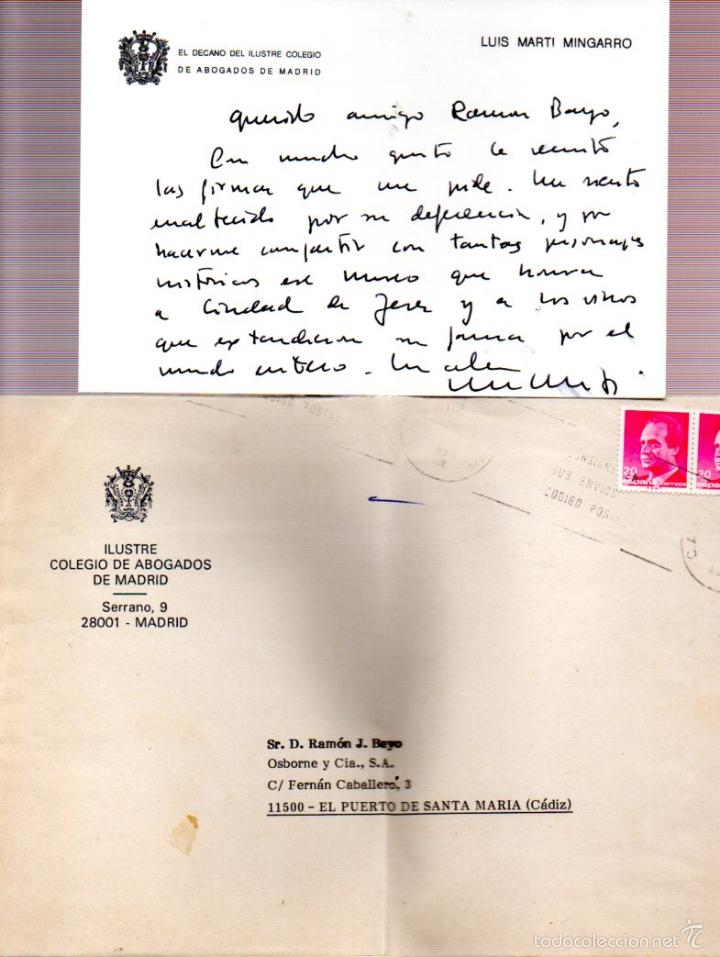 EL DECANO DEL ILUSTRE COLEGIO
DE ABOGADOS DE MADRID
LUIS MARTI MINGARRO
Querido amigo Ramon Bayo,
Con mucho gusto le remito
las firmas que me pide. Me siento
enaltecido por su deferencia, y por
hacerme compartir con tantos personajes
históricos ese Museo que honra
a Ciudad de Jerez y a los vinos
que extendieron su fama por el
mundo entero. Un
CODIGO POSTAL
SUS ENVIOS
CODIGO POSTAL
20
España
correos
20
España
ILUSTRE
COLEGIO DE ABOGADOS
DE MADRID
Serrano, 9
28001 - MADRID
Sr. D. Ramón J. Bayo
Osborne y Cia., S.A.
C/ Fernán Caballero, 3
11500 - EL PUERTO DE SANTA MARIA (Cádiz)
todocoleccion.net